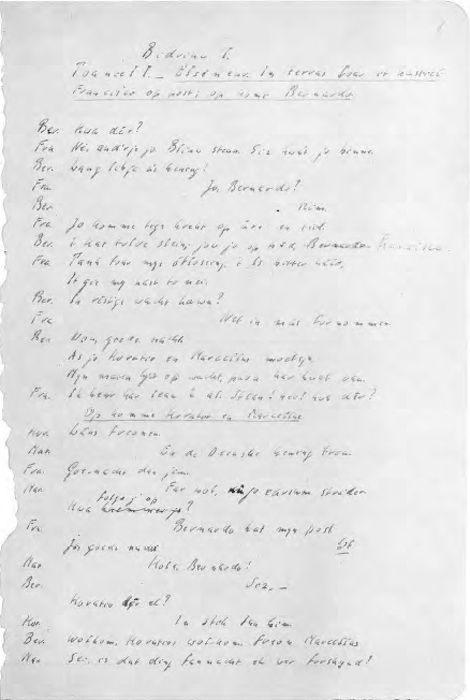 Bidriuw I.
Toaniel I. — Elseneur. In terras foar it kastiel
Francisco op post; op komt Bernardo
Ber. Hwa dêr?
Fra. Né, andertsje jo. Bliuw stean. Siz hwa't jo binne.
Ber. Lang libje ús kening!
Fra. Jo, Bernardo?
Ber. Him.
Fra. Jo komme tige krekt op ûre en tiid.
Ber. It hat tolve slein; jou jo op bêd, Francisco.
Fra. Tank foar myn ôflossing; it is bitter kâld,
It giet my nást to nei.
Ber. In rêstige wacht hawn?
Fra. Net in mûs fornommen
Ber. Nou, goede nacht.
As jo Horatio en Marcellus moetsje,
Myn maten op wacht, har hwat oan.
Fra. Ik hear har leau ik al. Stean! hee! hwa dêr?
Op komme Horatio en Marcellus
Hor. Lâns freonen.
Mar. En de Deenske kening trou.
Fra. Goenacht dan jim.
Mar. Far wol, earsum strider
Hwa folge jo op?
Fra. Bernardo hat myn post
Jo goede nacht Ôf
Mar. Hola, Bernardo!
Ber. Siz, —
Horatio dêr ek?
Hor. In stik fan him.
Ber. Wolkom, Horatio; wolkom, freon Marcellus
Mar. Siz, is dat ding fannacht ek wer forskynd?